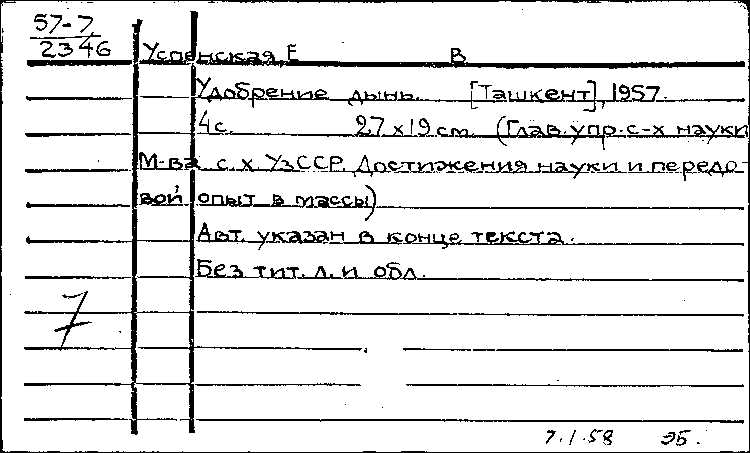 57-7
2346
Успенская, Е В
Удобрение дынь. [Ташкент], 1957.
4 с. 27 х 19 см. (Глав. упр. с-х науки
М-ва с. х. УзССР. Достижения науки и передо-
вой опыт в массы)
Авт. указан в конце текста.
Без тит. л. и обл.
7
7.1.58 ЭБ.